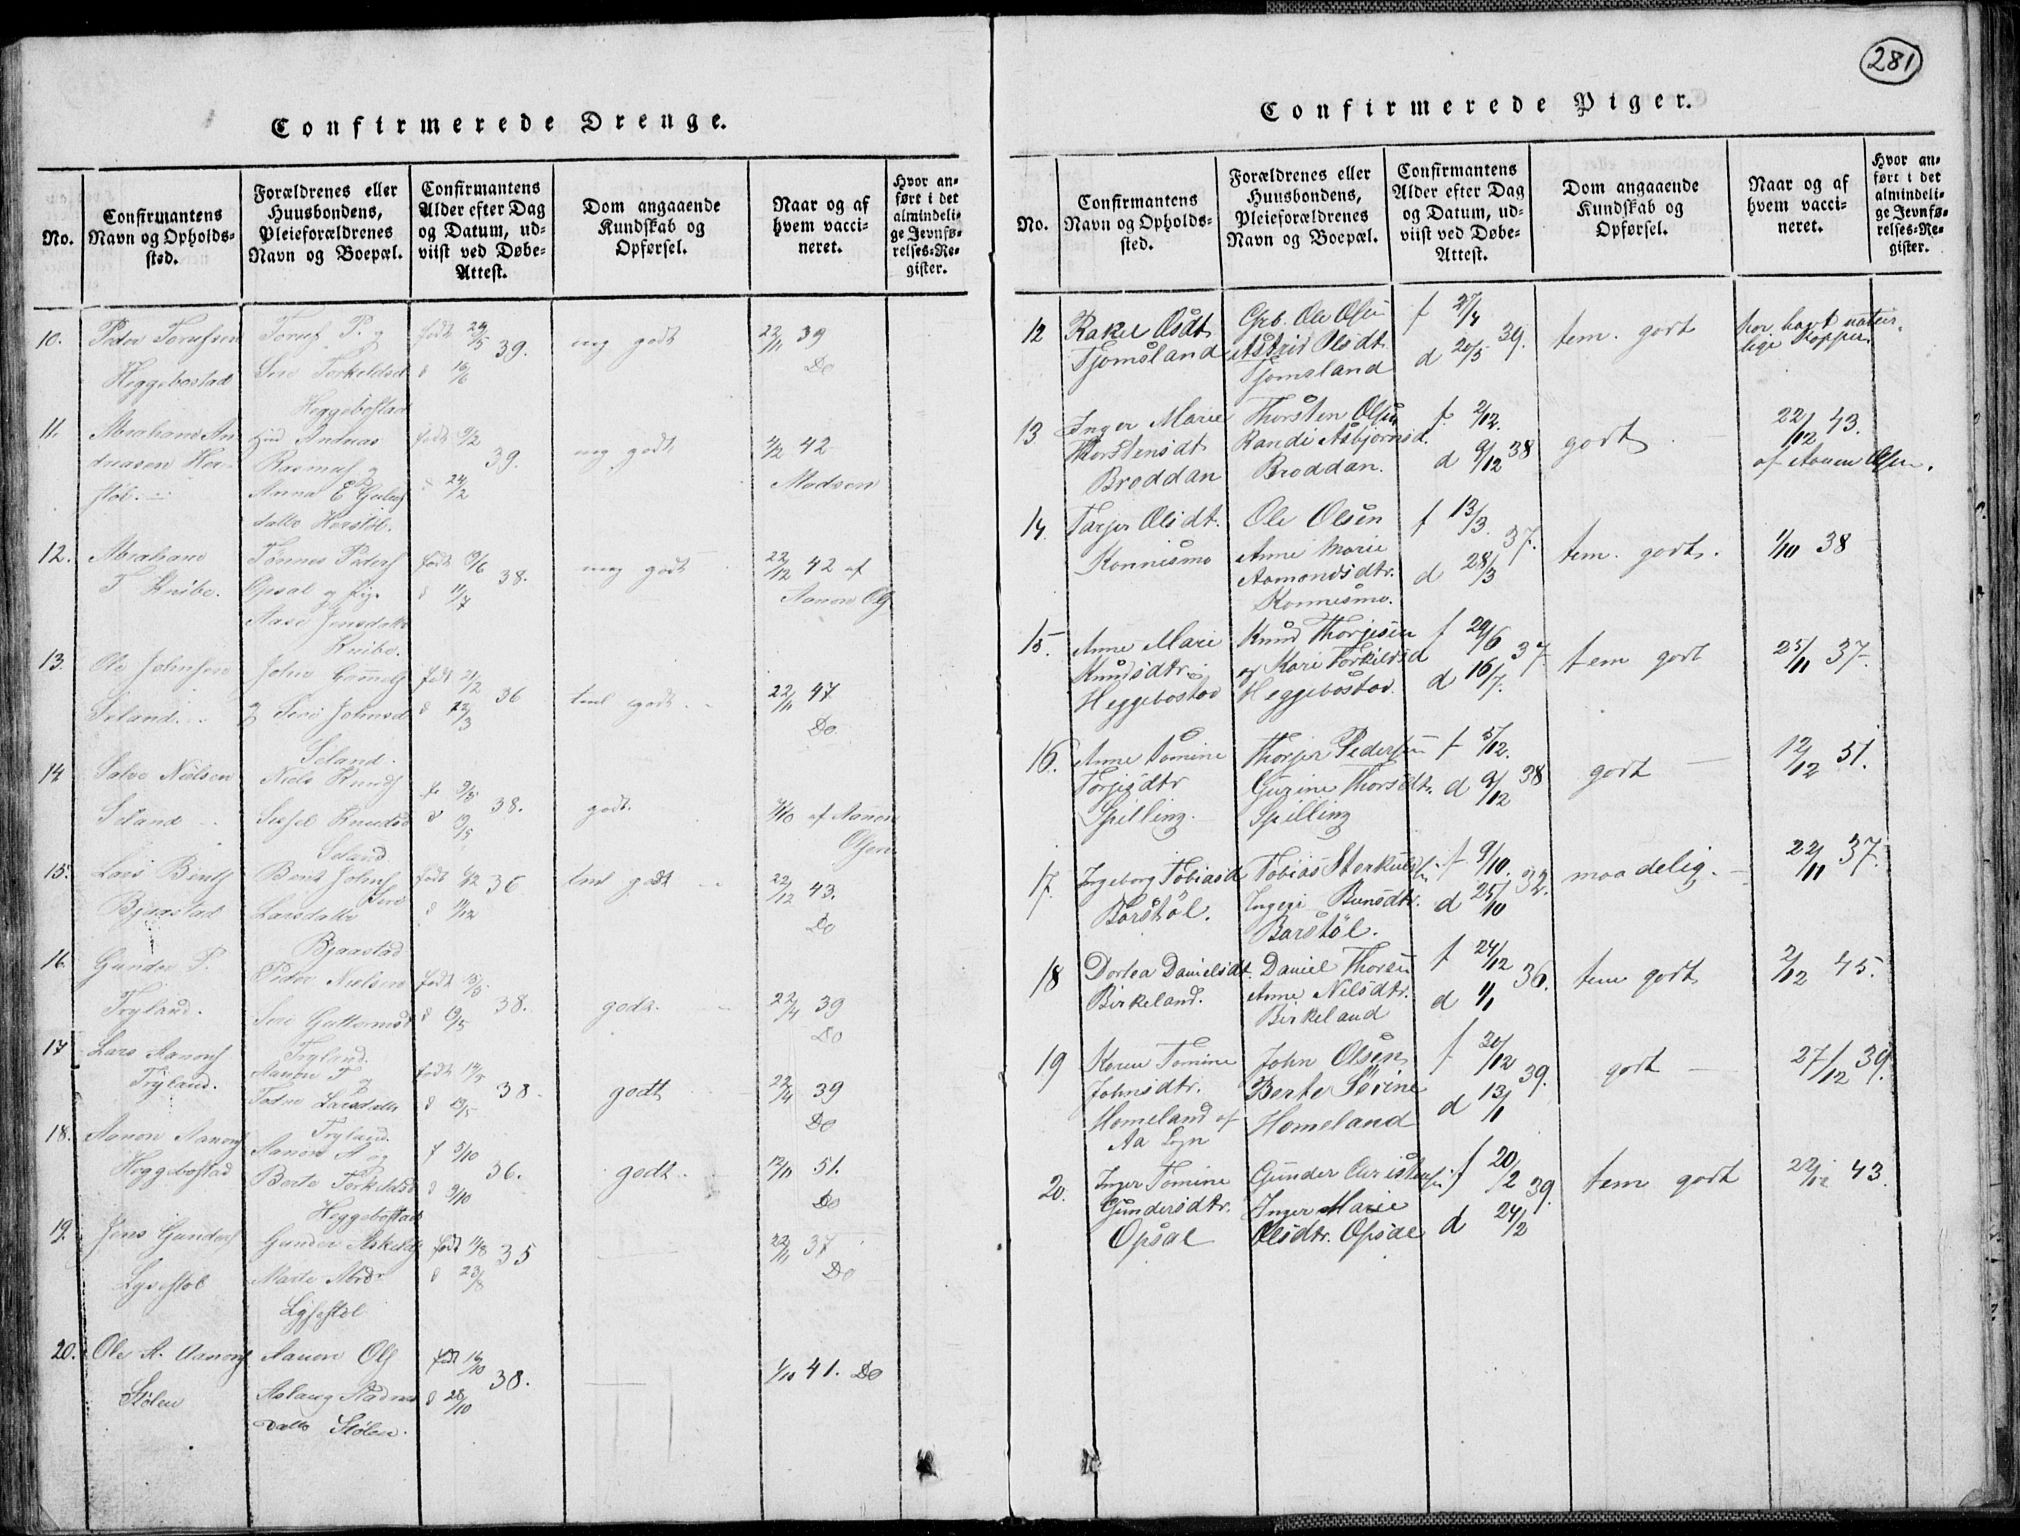 281
Confirmerede Drenge.
No.
Confirmantens Navn og Opholds-sted.
Forældrenes eller Huusbondens, Pleieforældrenes Navn og Boepæl.
Confirmantens Alder efter Dag og Datum, ud-viist ved Døbe-Attest.
Dom angaaende Kundskab og Opførsel.
Naar og af hvem vacci-neret.
Hvor an-ført i det almindeli-ge Jevnfø-relses-Re-gister.
10. Peder
Heggebostad
Heggebostad
født 24/5 39.
d 16/6
mg godt
22/11 39
Do
11. Abraham An
dreasen
Andreas
Rasmus
Anna E
39.
d 24/2
mg godt
42
Madsen
12. Abraham
T Knibe.
Tønnes Peders
Opsal og
Aase Jensdatter
Knibe.
38.
d 11/7
mg godt
22/12 42 af
Aanon Ols
13. Ole Johnsen
Seland.
John
Siri Johnsd
Seland.
36
tml godt
22/11 47
Do
14 Salve Nielsen
Seland
Niels Knuds
Sissel Knudsd
Seland
38.
godt
af Aanon
Olsen
15. Lars Bents
Bjærstad
Bent Johns
Siri
Larsdatter
Bjærstad
36
tml godt
22/12 43.
Do
16 Gunder P.
Tryland.
Peder Nielsen
Siri Guttormsd
Tryland.
38.
godt
22/4 39
Do
17 Lars Aanons
Tryland.
Aanon T
Larsdatter
Tryland.
38.
godt
22/4 39
Do
18. Aanon Aanons
Heggebostad
Aanon A og
Berte Torkeldsd
Heggebostad
f 5/10
d 9/10
36.
godt
12/11 51.
Do
19. Jens Gunders
Lysestøl
Gunder Askelds
Marte
Lysestøl
35
d 23/8
22/11 37
Do
20. Ole A. Aanons
Stølen
Aanon Ols
Aslaug
datter Stølen.
født 16/10
d 28/10
38.
1/10 41. Do
Confirmerede Piger.
No.
Confirmantens Navn og Opholds-sted.
Forældrenes eller Huusbondens, Pleieforældrenes Navn og Boepæl.
Confirmantens Alder efter Dag og Datum, ud-viist ved Døbe-Attest.
Dom angaaende Kundskab og Opførsel.
Naar og af hvem vacci-neret.
Hvor an-ført i det almindeli-ge Jevnfø-relses-Re-gister.
12 Rakel Olsdt
Tjomsland
Grb. Ole Olsen
Astrid Olsdt
Tjomsland
f 27/4
d 20/5 39.
tem. godt
har havt natur-
lige Kopper.
13 Inger Marie
Thorstensdt
Brøddan
Thorsten Olsen
Randi Asbjørnsd.
Brøddan.
f 2/12.
d 9/12 38
godt
22/12 43.
af Aanon Olsen.
14. Tarjer Olsdt.
Konnismo
Ole Olsen
Anne Marie
Aamondsdtr.
Konnesmo.
f 13/3
d 28/3 37.
tem. godt.
1/10 38
15. Anne Mari
Knudsdtr.
Heggebostad
Knud Thorjesen
og Kari Torkildsd
Heggebostad.
f 29/6
d 16/7. 37
tem godt
25/11 37.
16. Anne Tomine
Torjesdtr
Spilling.
Thorjer Pedersen
Gurine Thorsdtr.
Spilling
f 5/12.
d 9/12 38
godt
12/12 51.
17. Ingeborg Tobiasd
Barstöl.
Tobias Storkersen
Ingeri Bensdtr.
Barstöl.
f 9/10.
d 25/10 32.
maadelig.
22/11 37.
18 Dortea Danielsdt.
Birkeland.
Daniel Thorsen
Anne Nilsdtr.
Birkeland
f 24/12
d 1/1 36.
tem godt
2/12 45.
19 Karen Tomine
Johnsdtr.
Homeland af
Aa Sogn
John Olsen
Berte Serine
Homeland
f 20/12
d 13/1 39.
godt
27/12 39.
20. Inger Tomine
Gundersdtr.
Opsal
Gunder Christensen
Inger Marie
Olsdtr. Opsal
f 20/2 39.
d 24/2
tem godt
22/12 43.